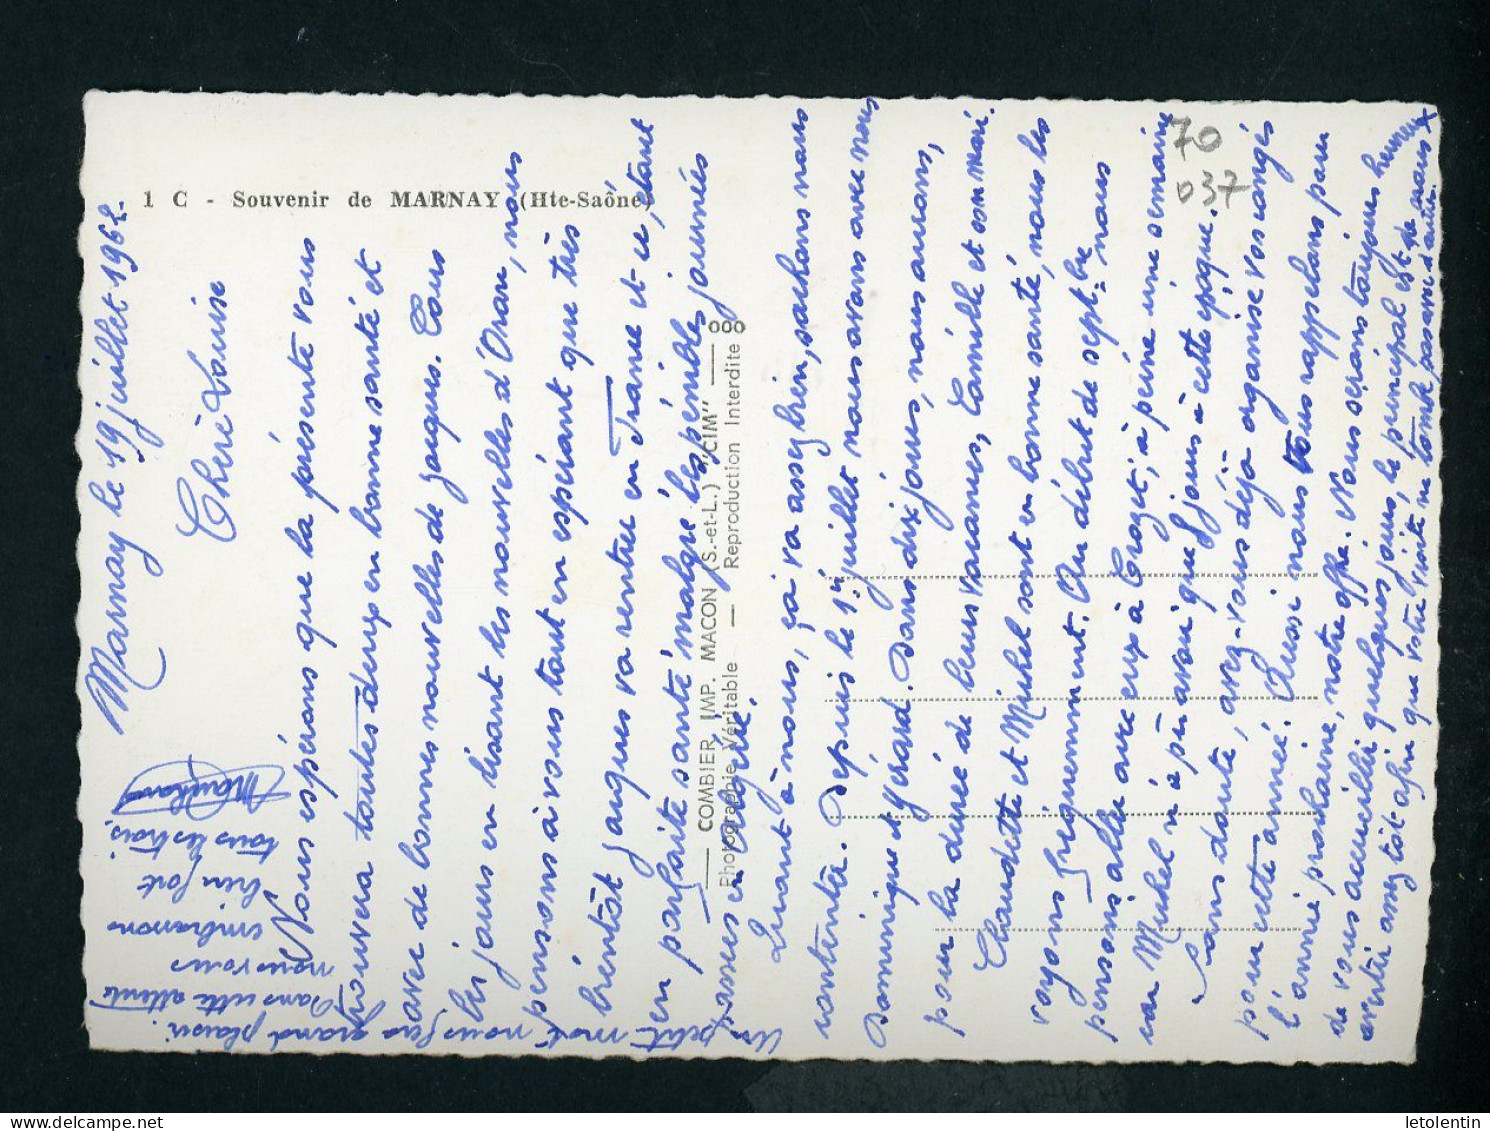 1 C - Souvenir de MARNAY (Hte-Saône)
70
037
COMBIER IMP. MACON (S.-et-L.) "CIM"
Photographie Véritable — Reproduction Interdite
Marnay le 19 juillet 1962
Chère Louise
Nous espérons que la présente vous
trouvera toutes deux en bonne santé et
avec de bonnes nouvelles de Jacques. Tous
les jours en lisant les nouvelles d'Oran, nous
pensons à vous tout en espérant que très
bientôt Jacques va rentrer en France et ce, étant
en parfaite santé malgré les pénibles journées
passées en Algérie.
Quant à nous, ça va assez bien, sachons nous
contenter. Depuis le 1er juillet nous avons avec nous
Dominique et Gérard. Dans dix jours, nous aurons,
pour la durée de leurs vacances, Camille et son mari.
Claudette et Michel sont en bonne santé, nous les
voyons fréquemment. Au début de septbre nous
pensons aller avec eux à Crozet, à peine une semaine
car Michel n'a pu avoir que 8 jours à cette époque.
Sans doute, avez-vous déjà organisé vos congés
pour cette année. Aussi nous vous rappelons pour
l'année prochaine, notre offre. Nous serons toujours heureux
de vous accueillir quelques jours, le principal est de nous
avertir assez tôt afin que votre visite ne tombe pas avec d'autres.
Un petit mot nous fera grand plaisir.
Dans cette attente
nous vous
embrassons
bien fort
tous les trois.
letolentin